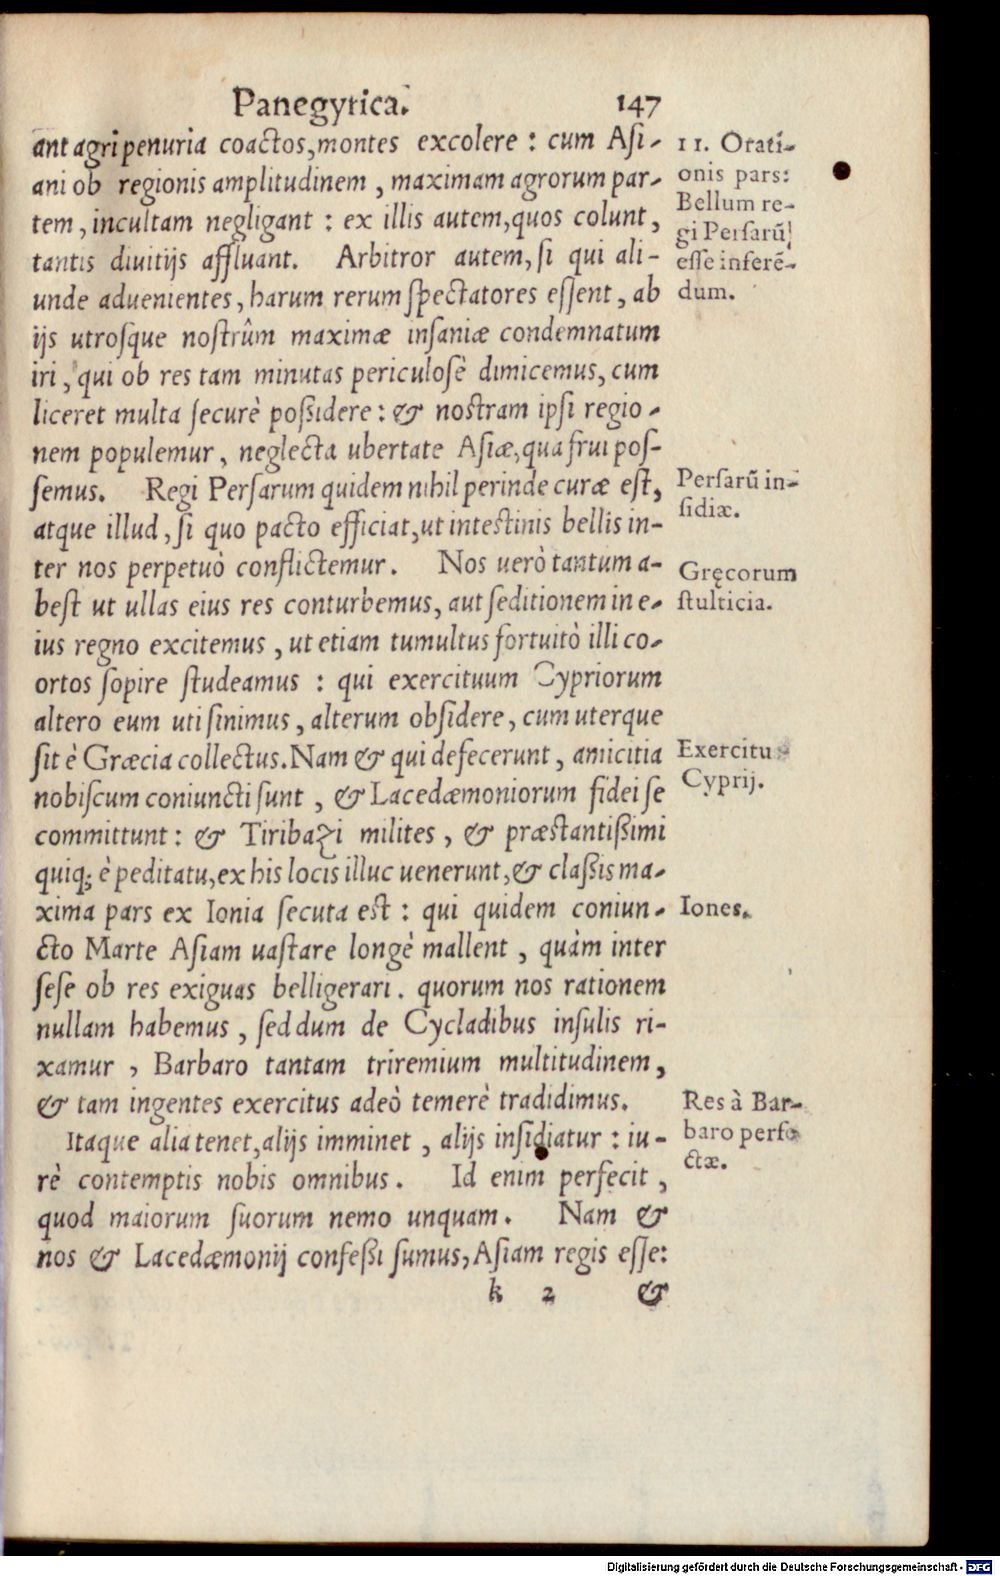 Panegyrica. 147
ant agri penuria coactos, montes excolere : cum Asi-
ani ob regionis amplitudinem, maximam agrorum par-
tem, incultam negligant : ex illis autem, quos colunt,
tantis diuitijs affluant. Arbitror autem, si qui ali-
unde aduenientes, harum rerum spectatores essent, ab
ijs utrosque nostrûm maximæ insaniæ condemnatum
iri, qui ob res tam minutas periculosè dimicemus, cum
liceret multa securè poßidere : & nostram ipsi regio-
nem populemur, neglecta ubertate Asiæ, qua frui pos-
semus. Regi Persarum quidem nihil perinde curæ est,
atque illud, si quo pacto efficiat, ut intestinis bellis in-
ter nos perpetuò conflictemur. Nos uerò tantum a-
best ut ullas eius res conturbemus, aut seditionem in e-
ius regno excitemus, ut etiam tumultus fortuitò illi co-
ortos sopire studeamus : qui exercituum Cypriorum
altero eum uti sinimus, alterum obsidere, cum uterque
sit è Græcia collectus. Nam & qui defecerunt, amicitia
nobiscum coniuncti sunt, & Lacedæmoniorum fidei se
committunt : & Tiribazi milites, & præstantißimi
quiq; è peditatu, ex his locis illuc uenerunt, & claßis ma-
xima pars ex Ionia secuta est : qui quidem coniun-
cto Marte Asiam uastare longè mallent, quàm inter
sese ob res exiguas belligerari. quorum nos rationem
nullam habemus, sed dum de Cycladibus insulis ri-
xamur, Barbaro tantam triremium multitudinem,
& tam ingentes exercitus adeò temerè tradidimus.
Itaque alia tenet, alijs imminet, alijs insidiatur : iu-
rè contemptis nobis omnibus. Id enim perfecit,
quod maiorum suorum nemo unquam. Nam &
nos & Lacedæmonij confeßi sumus, Asiam regis esse:
k 2 &
11. Orati-
onis pars:
Bellum re-
gi Persarũ
esse inferẽ-
dum.
Persarũ in-
sidiæ.
Gręcorum
stulticia.
Exercitu
Cyprij.
Iones.
Res à Bar-
baro perfe
ctæ.
Digitalisierung gefördert durch die Deutsche Forschungsgemeinschaft - DFG